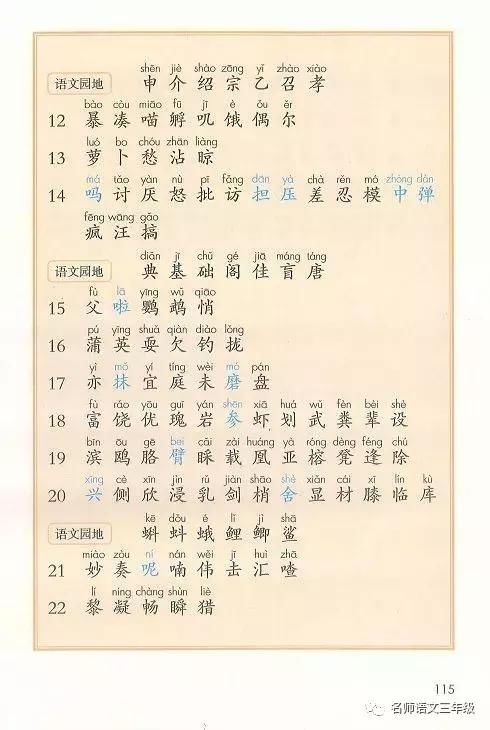 shēn jiè shào zōng yǐ zhào xiào
语文园地 申 介 绍 宗 乙 召 孝
bào còu miāo fū jī è ǒu ěr
12 暴 凑 喵 孵 叽 饿 偶 尔
luó bo chóu zhān liàng
13 萝 卜 愁 沾 晾
má tǎo yàn nù pī fǎng dān yā chà rěn mó zhòng dàn
14 吗 讨 厌 怒 批 访 担 压 差 忍 模 中 弹
fēng wāng gǎo
疯 汪 搞
diǎn jī chǔ gé jiā máng táng
语文园地 典 基 础 阁 佳 盲 唐
fù lā yīng wǔ qiāo
15 父 啦 鹦 鹉 悄
pú yīng shuǎ qiàn diào lǒng
16 蒲 英 耍 欠 钓 拢
yì mǒ yí tíng wèi mó pán
17 亦 抹 宜 庭 未 磨 盘
fù ráo yōu guī yán shēn xiā huá wǔ fèn bèi shè
18 富 饶 优 瑰 岩 参 虾 划 武 粪 辈 设
bīn ōu gē bei cǎi zài huáng yà róng dèng féng chú
19 滨 鸥 胳 臂 睬 载 凰 亚 榕 凳 逢 除
xīng cè xīn jìn rǔ jiàn shāo shè xiǎn cái xī lín kù
20 兴 侧 欣 浸 乳 剑 梢 舍 显 材 膝 临 库
kē dǒu é lǐ jì shā
语文园地 蝌 蚪 蛾 鲤 鲫 鲨
miào zòu ní nán wěi jī huì zhā
21 妙 奏 呢 喃 伟 击 汇 喳
lí níng chàng shùn liè
22 黎 凝 畅 瞬 猎
115
名师语文三年级